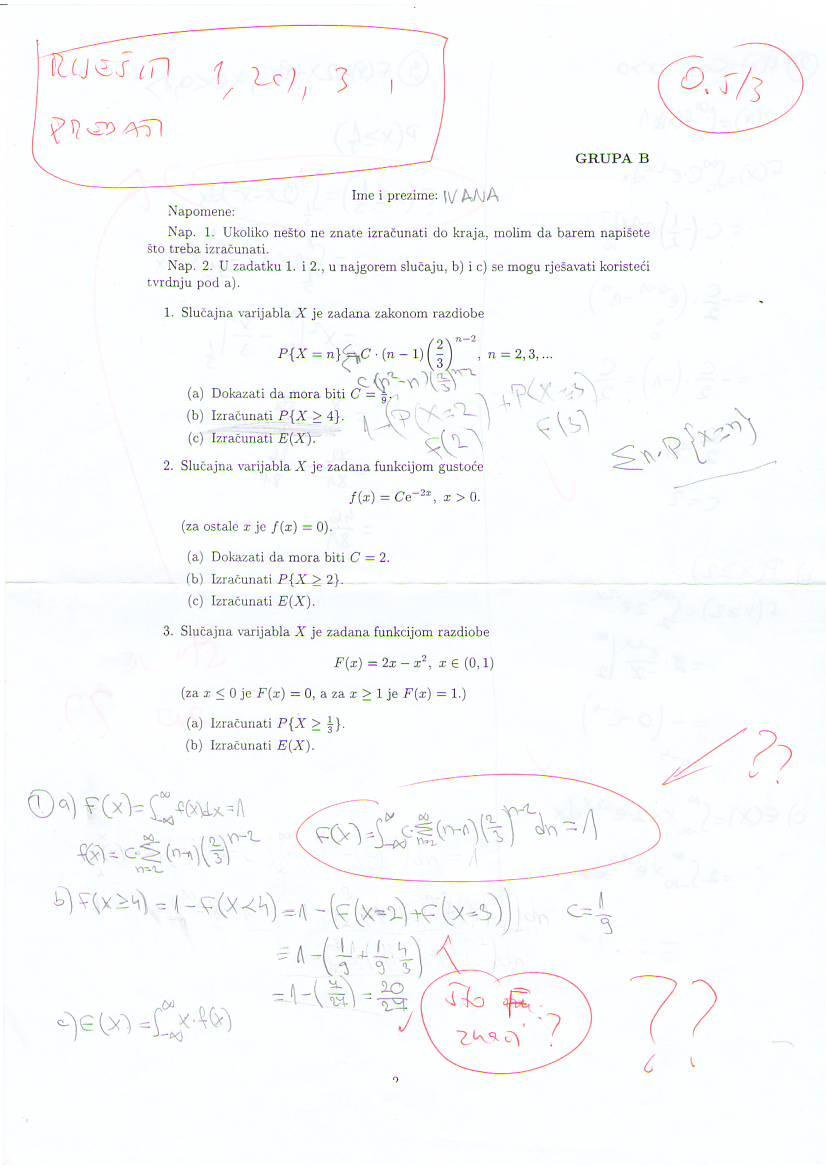 RIJEŠITI 1, 2c), 3,
PREDATI
0.5/3
GRUPA B
Ime i prezime: IVANA
Napomene:
Nap. 1. Ukoliko nešto ne znate izračunati do kraja, molim da barem napišete
što treba izračunati.
Nap. 2. U zadatku 1. i 2., u najgorem slučaju, b) i c) se mogu rješavati koristeći
tvrdnju pod a).
1. Slučajna varijabla X je zadana zakonom razdiobe
P{X = n} = C · (n − 1) (2/3)^{n−2}, n = 2, 3, ...
C(n²-n)(2/3)^{n-2}
(a) Dokazati da mora biti C = 1/9.
(b) Izračunati P{X ≥ 4}.
1-(P(X=2)+P(X=3)
(c) Izračunati E(X).
F(2) F(3)
Σn·P{X=n}
2. Slučajna varijabla X je zadana funkcijom gustoće
f(x) = Ce^{−2x}, x > 0.
(za ostale x je f(x) = 0).
(a) Dokazati da mora biti C = 2.
(b) Izračunati P{X ≥ 2}.
(c) Izračunati E(X).
3. Slučajna varijabla X je zadana funkcijom razdiobe
F(x) = 2x − x², x ∈ (0, 1)
(za x ≤ 0 je F(x) = 0, a za x ≥ 1 je F(x) = 1.)
(a) Izračunati P{X ≥ 1/3}.
(b) Izračunati E(X).
??
① a) F(x)=∫_{-∞}^{∞} f(x)dx=1
F(x)=∫_{-∞}^{∞} C·Σ_{n=2}^{∞} (n-1)(2/3)^{n-2} dn=1
f(x)=C·Σ_{n=2}^{∞} (n-1)(2/3)^{n-2}
b) F(X≥4)=1-F(X<4)=1-(F(X=2)+F(X=3)) C=1/9
=1-(1/9+1/9·4/3)
=1-(7/27)=20/27
što
znači?
??
c) E(X)=∫_{-∞}^{∞} x·f(x)
2